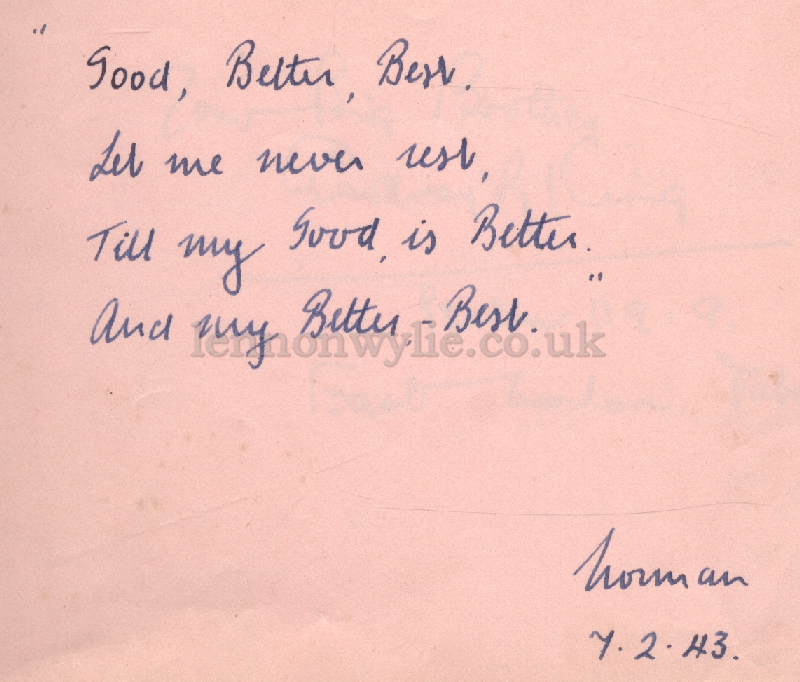 " Good, Better, Best.
Let me never rest,
Till my Good, is Better.
And my Better, - Best. "
lennonwylie.co.uk
Norman
7.2.43.